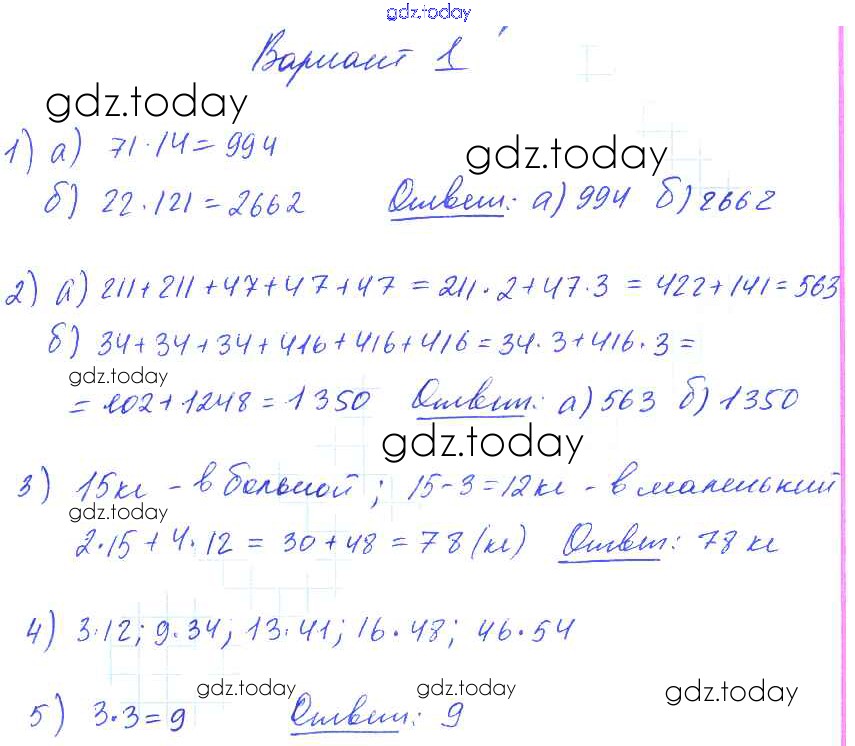 gdz.today
Вариант 1
gdz.today
1) а) 71·14=994
gdz.today
б) 22·121=2662 Ответ: а) 994 б) 2662
2) а) 211+211+47+47+47 = 211·2+47·3 = 422+141=563
б) 34+34+34+416+416+416=34·3+416·3=
gdz.today
=102+1248=1350 Ответ: а) 563 б) 1350
gdz.today
3) 15кг - в большой; 15-3=12кг - в маленький
gdz.today
2·15+4·12 = 30+48 = 78 (кг) Ответ: 78 кг
4) 3·12; 9·34; 13·41; 16·48; 46·54
gdz.today gdz.today gdz.today
5) 3·3=9 Ответ: 9